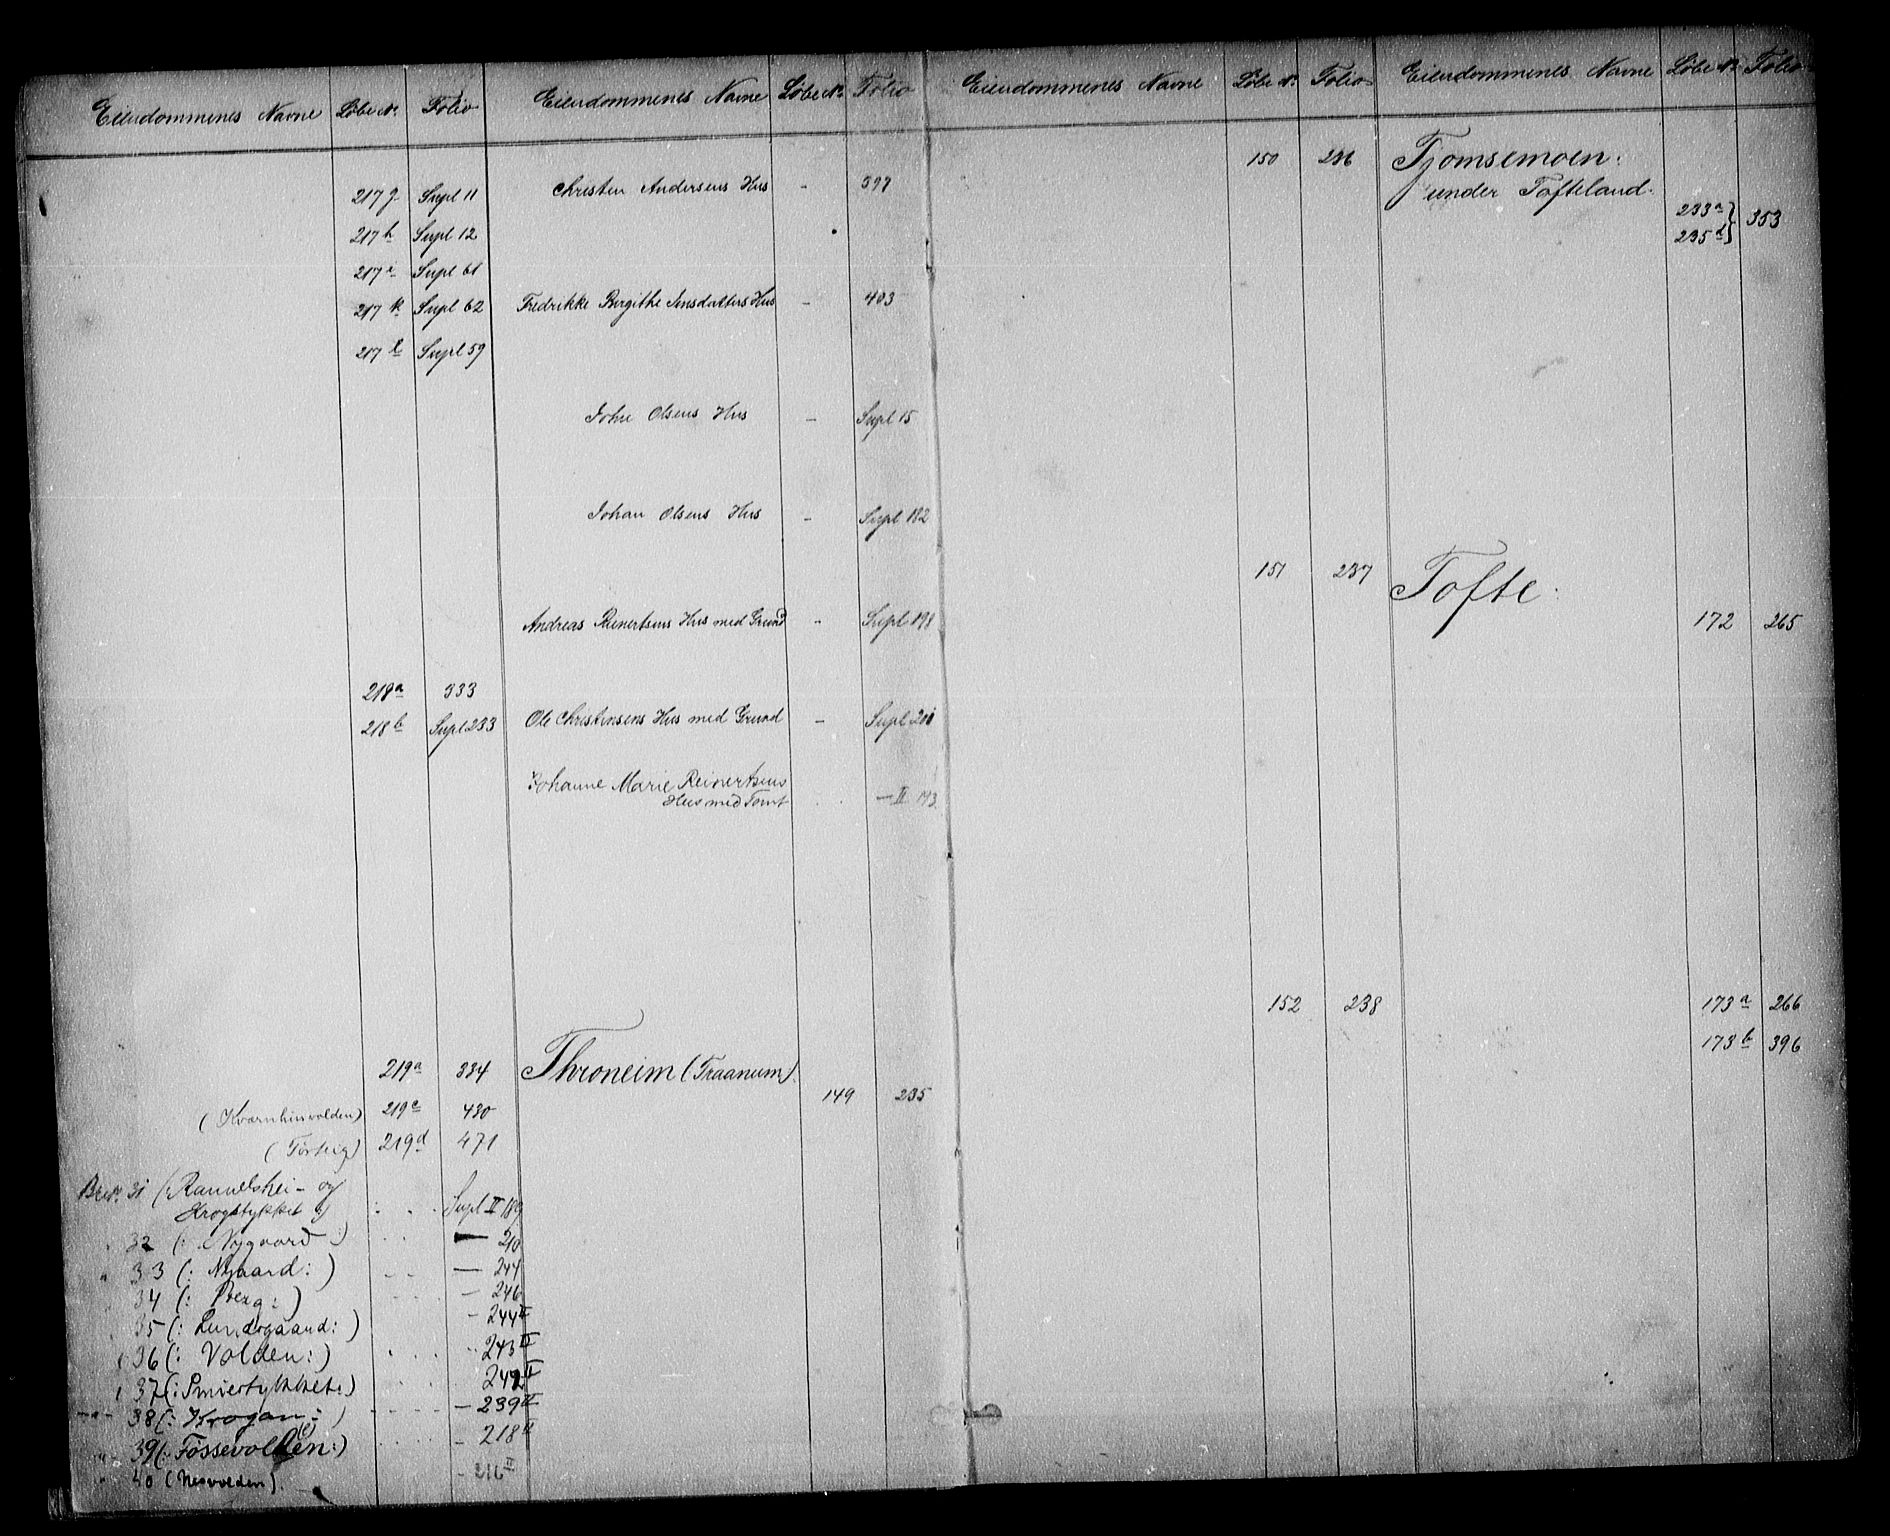 Eiendommenes Navne Løbe No. Folio
217 g Supl 11
217 h Supl 12
217 i Supl 61
217 k Supl 62
217 l Supl 59
218 a 333
218 b Supl 233
219 a 334
(Kvarnhusvolden) 219 c 430
219 d 471
Br.No. 31 (: Rannelshei- og
Krogstykket :) Supl II 189
" 32 (: Nygaard :) — 210
" 33 (: Nygaard :) — 244
34 (: Berg :) — 246
" 35 (: Lundsgaard :) - 244 II
" 36 (: Volden :) 243 II
" 37 (: Smiestykket :) 242 II
38 (: Krogan :) — 239 II
" 39 (: Fossevolden :) - 218 II
" 40 (Nesvolden). - 216 II
Eiendommenes Navne Løbe No. Folio
Christen Andersens Hus - 397
Fredrikke Birgithe Jensdatters Hus - 403
John Olsens Hus - Supl 15
Johan Olsens Hus - Supl 182
Andreas Reinertsens Hus med Grund - Supl 198
Ole Christensens Hus med Grund - Supl 201
Johanne Marie Reinertsens
Hus med Tomt — II 143
Throneim (Traanum).
149 235
Eiendommenes Navne Løbe No. Folio
150 236
151 237
152 238
Eiendommenes Navne Løbe No. Folio
Tjomsemoen.
under Tofteland.
233 a } 353
235 d }
Tofte.
172 265
173 a 266
173 b 396